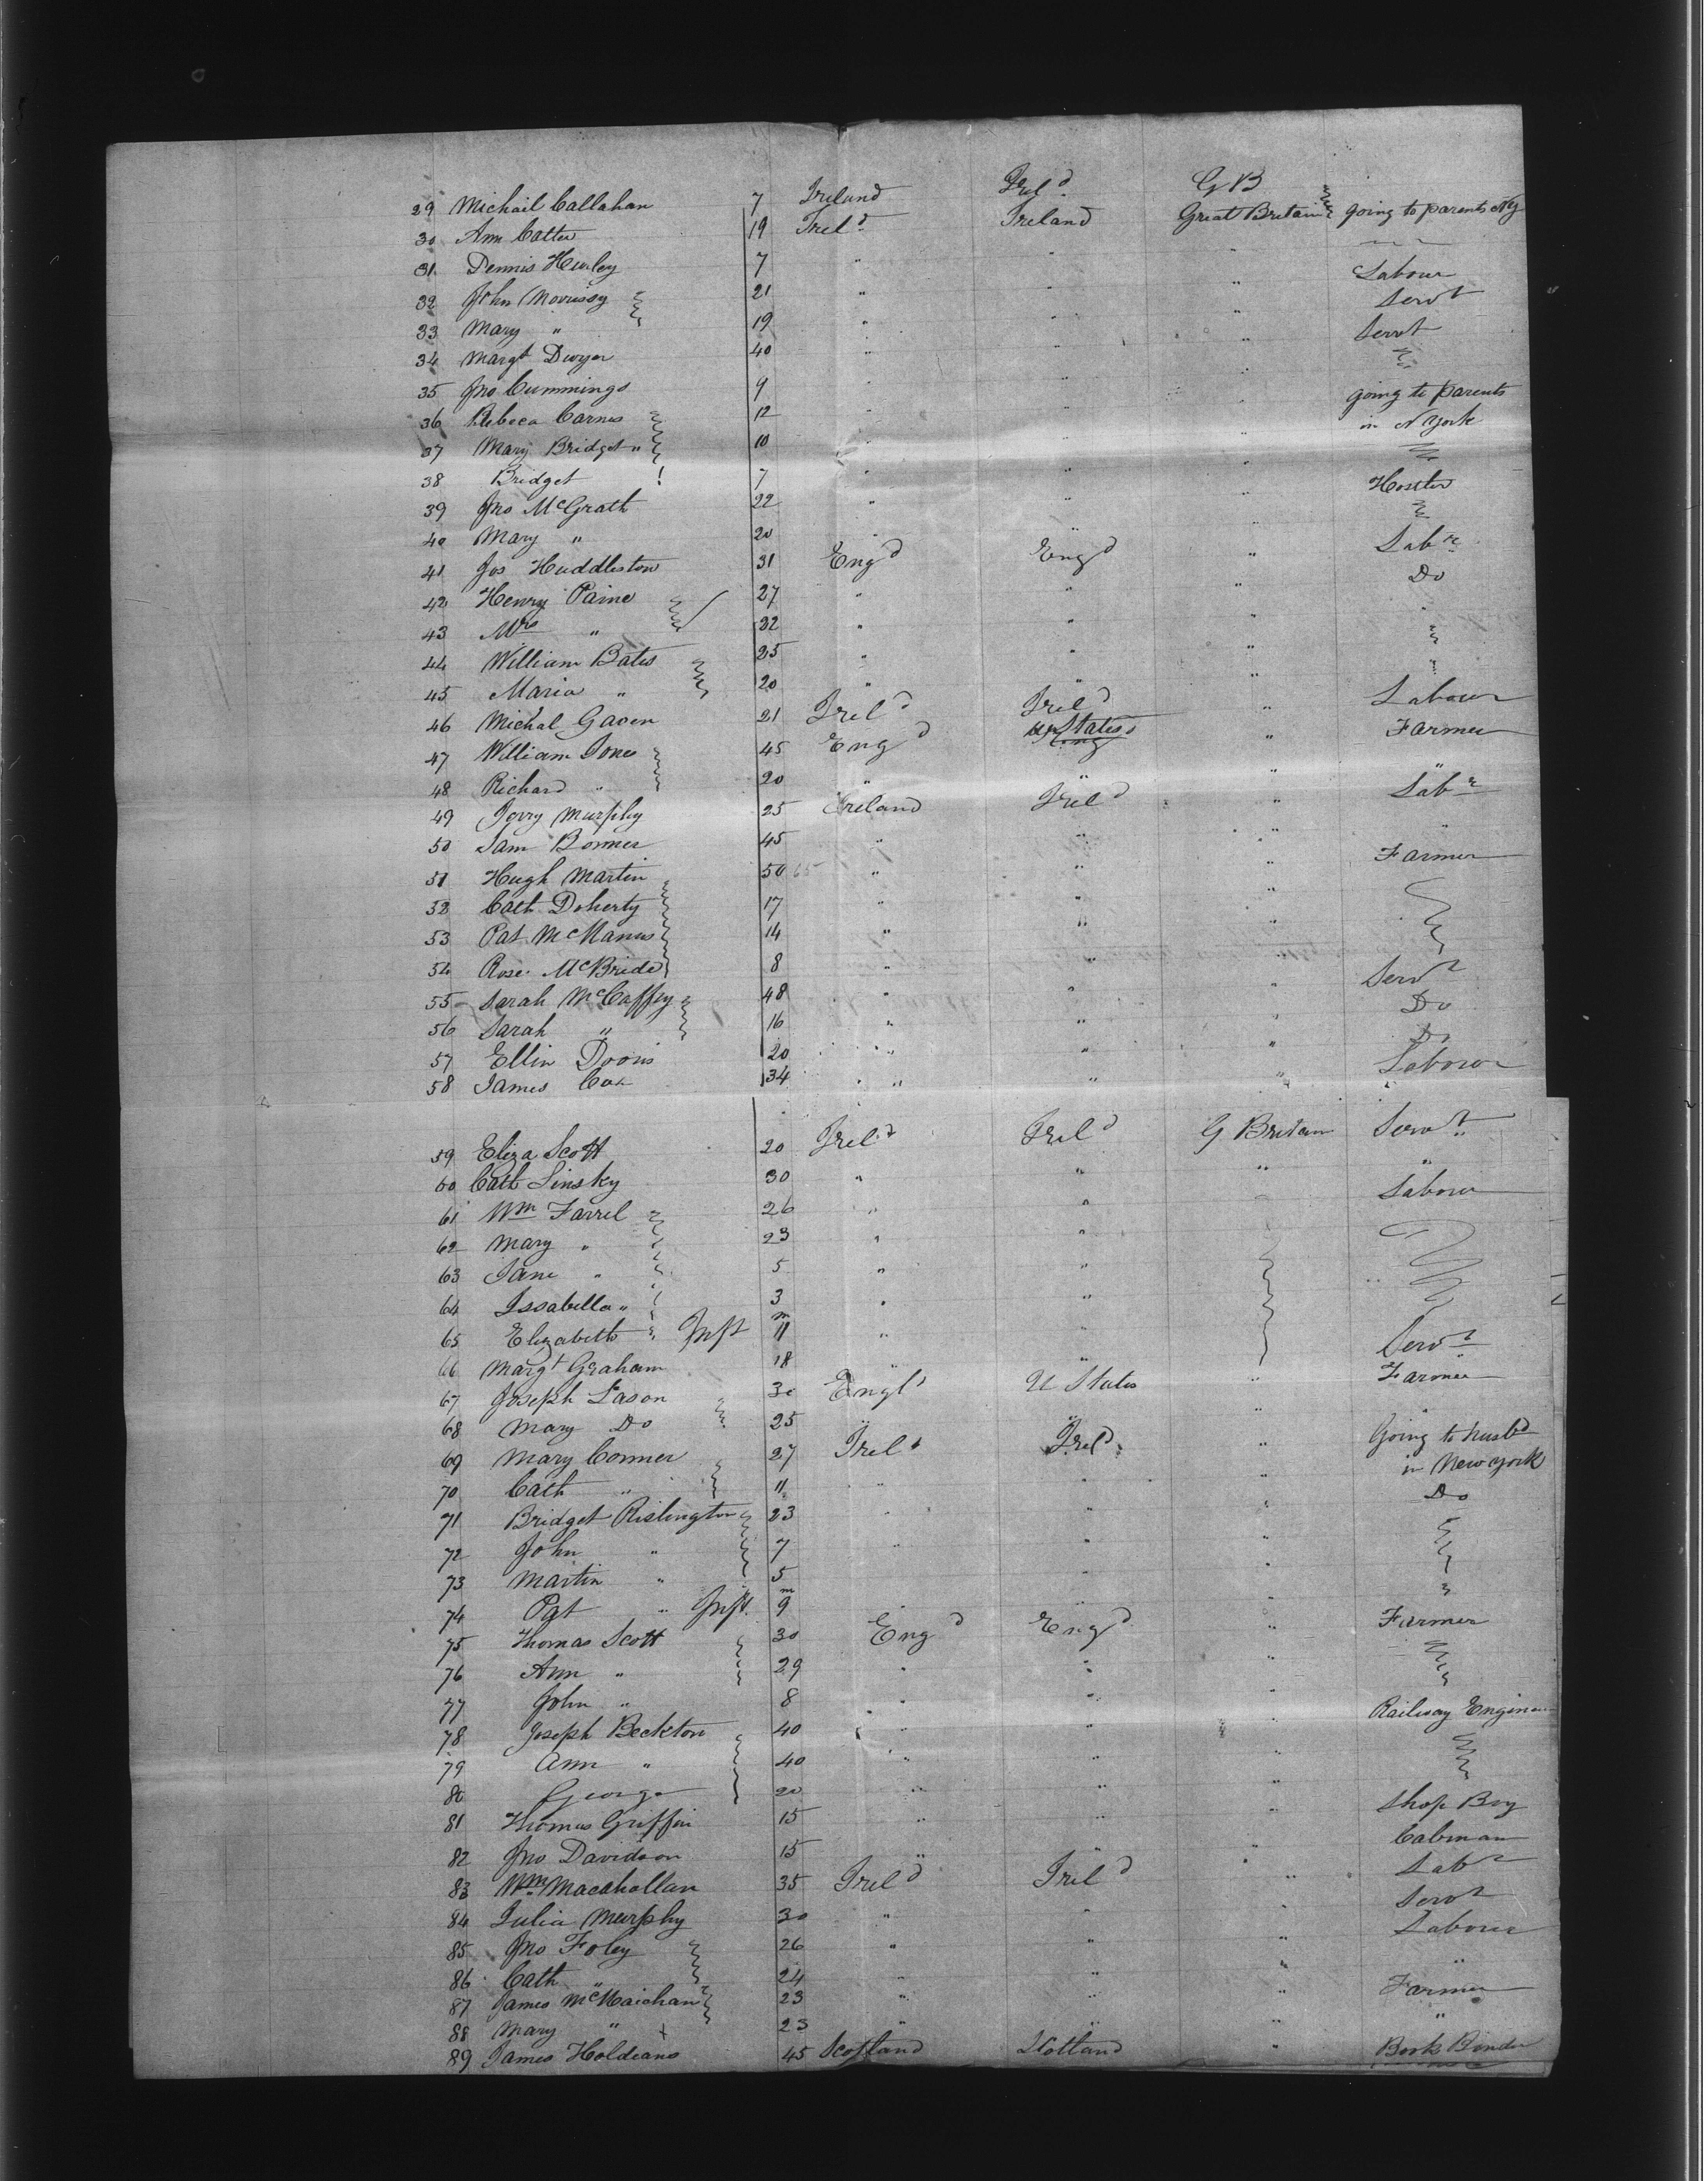 29 Michail Callahan 7 Ireland Irel'd G B
30 Ann Catter 19 Irel'd Ireland Great Britain going to parents NY
31 Dennis Hurley 7 " "
32 John Morrissy 21 " " " Labour
33 Mary " 19 " " " Servt
34 Margt Dwyer 40 " " " Servt
35 Jno Cummings 9 " " "
36 Rebeca Carnes 12 " " going to parents
37 Mary Bridget " 10 " in N York
38 Bridget 7 " " "
39 Jno McGrath 22 " " " Hostler
40 Mary " 20 "
41 Jos Huddleston 31 Eng'd Eng'd " Labr
42 Henry Paine 27 " " " Do
43 Mrs " 32 " " "
44 William Bates 25 " " "
45 Maria " 20 " " "
46 Michal Gaven 21 Irel'd Irel'd " Labour
47 William Jones 45 Eng'd U States " Farmer
48 Richard " 20 " " "
49 Jerry Murphy 25 Ireland Irel'd " Labr
50 Sam Bonner 45 " " " "
51 Hugh Martin 50 " " " Farmer
52 Cath Doherty 17 " " "
53 Pat McManus 14 " " "
54 Rose McBride 8 " " "
55 Sarah McCaffey 48 " " " Servt
56 Sarah " 16 " " " Do
57 Ellin Doris 20 " " " Do
58 James Cox 34 " " " Labour
59 Eliza Scott 20 Irel'd Irel'd G Britain Servt
60 Cath Linsky 30 " " " "
61 Wm Farrel 26 " " Labour
62 Mary " 23 " "
63 Jane " 5 " "
64 Issabella " 3 " "
65 Elizabeth Inft 11 m " "
66 Margt Graham 18 " " Servt
67 Joseph Eason 30 Engl'd U States " Farmer
68 Mary Do 25 " " "
69 Mary Conner 27 Irel'd Irel'd " Going to husbd
70 Cath " 11 " " " in New York
71 Bridget Rislington 23 " " " Do
72 John " 7 " " "
73 Martin " 5 " "
74 Pat " Inft. 9 m " "
75 Thomas Scott 30 Eng'd Eng'd " Farmer
76 Ann " 29 " " "
77 John " 8 " " "
78 Joseph Beckton 40 " " " Railway Engineer
79 Ann " 40 " " "
80 George 20 " " "
81 Thomas Griffin 15 " " " Shop Boy
82 Jno Davidson 15 " " " Cabman
83 Wm Macahollan 35 Irel'd Irel'd " Labr
84 Julia Murphy 30 " " " Servt
85 Jno Foley 26 " " " Labour
86 Cath " 24 " " " "
87 James McMaichan 23 " " " Farmer
88 Mary " 23 " " " "
89 James Holdians 45 Scotland Scotland " Book Binder